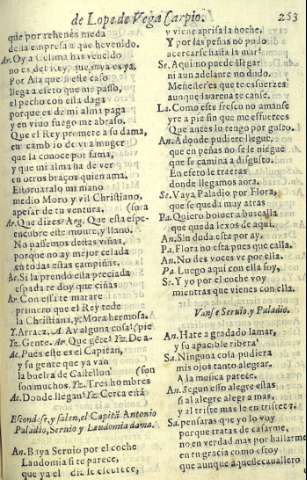 de Lope de Vega Carpio. 253
que por rehenes me da
de la empresa a que he venido.
Ar. Oy a Celima has vencido
no es del Rey, que ya es ya,
Por Ala que si este caso
llega a esto que me passo,
el pecho con esta daga
porque es de mi alma paga
y en viuo fuego me abraso.
Que el Rey promete a su dama,
en cambio de vna muger
que la conoce por fama,
y que mi alma ha de ver
en otros braços quien ama,
Estoruaralo mi mano
medio Moro y vil Christiano,
apesar de tu ventura.
Ar. Que dizes? Arg. Que esta espe-
encubre este monte, y llano. (sura
No passemos destas viñas,
porque no ay mejor celada
en todas estas campiñas.
Ar. Si la prenda esta preciada
espada te doy que ciñas
Ar. Con esta te matare
primero que el Rey te de
la Christiana, y Mora hermosa.
Tz. Arraez. A. Ay alguna cosa? (pie
Tz. Gente. Ar. Que gète? Tz. De a-
Ar. Pues este es el Capitan,
y su gente que ya van
la buelta de Castellon (son
son muchos. Tz. Tres hombres
Ar. Donde llegan? Tz. Cerca está
Escondese, y salen, el Capitã Antonio
Paladio, Seruio y Laudomia dama.
An. Baya Seruio por el coche
Laudomia si te parece,
que ya el dia se escurece,
y viene aprisa la noche.
Y por las peñas no pudo
acercarse hasta la mar
Se. Aqui no puede llegar
ni aun adelante no dudo.
Menester es que te esfuerzes
aunque la arena te canse.
La. Como este fresco no amanse
yre a pie sin que me esfuerces
Que antes lo tengo por gusto.
An. Adonde pudiere llegue,
que en peñas no se le niegue
que se camina a disgusto.
En efeto le traeras
donde llegamos aora.
Se. Vaya Paladio por Flora,
que se queda muy atras
Pa. Quiero boluer a buscalla
que queda lexos de aqui.
An. Sin duda esta por ay.
Pa. Flora no esta pues que calla.
An. No des vozes ve por ella.
Pa. Luego aqui con ella soy,
Se. Y yo por el coche voy
mientras que vienes con ella.
Vanse Seruio, y Paladio.
An. Hate agradado la mar,
y su apacible ribera?
Sa. Ninguna cosa pudiera
mis ojos tanto alegrar.
A la musica parece.
An. Segun esso alegre estas
si al alegre alegra mas,
y al triste mas le entristece.
Sa. pensaras que yo lo voy
porque tratas de casarme,
no en verdad mas por hallarme
en tu gracia como estoy
que aunque aquel de cauallero